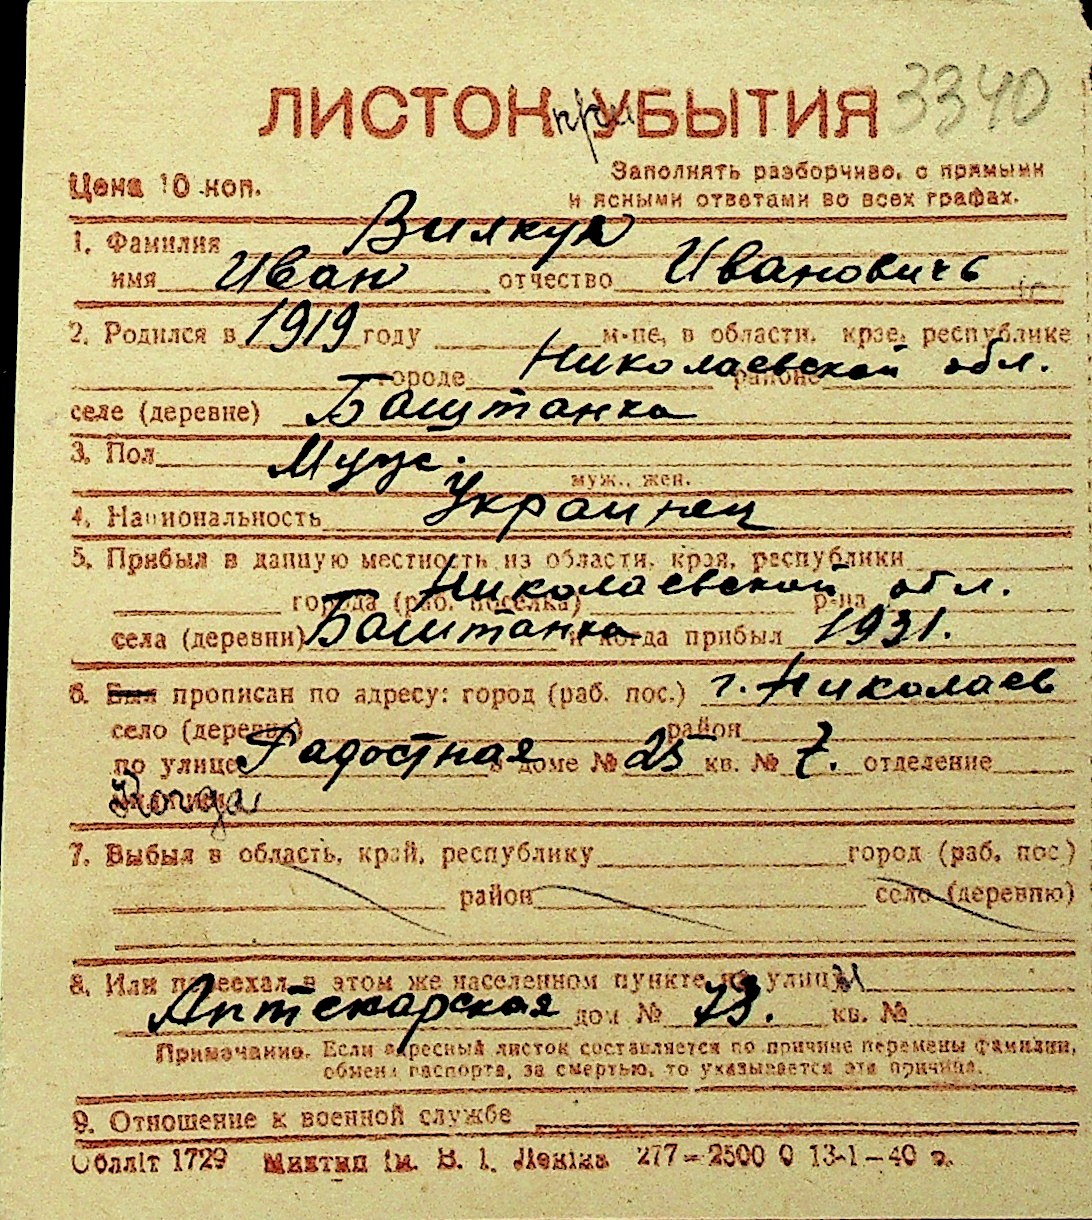 3340
ЛИСТОК при УБЫТИЯ
Цена 10 коп.
Заполнять разборчиво, с прямыми
и ясными ответами во всех графах.
1. Фамилия Вилкул
имя Иван отчество Ивановичь
2. Родился в 1919 году м-це, в области, крае, республике
городе Николаевской районе обл.
селе (деревне) Баштанка
3. Пол Муж.
муж., жен.
4. Национальность Украинец
5. Прибыл в данную местность из области, края, республики
города (раб. поселка) Николаевской р-на обл.
села (деревни) Баштанка и когда прибыл 1931.
6. Был прописан по адресу: город (раб. пос.) г. Николаев
село (деревня) район
по улице Радостная в доме № 25 кв. № 7. отделение
милиции
7. Выбыл в область, край, республику город (раб. пос)
район село (деревню)
8. Или переехал в этом же населенном пункте на улицу
Аптекарская дом № 13. кв. №
Примечание. Если адресный листок составляется по причине перемены фамилии,
обмена паспорта, за смертью, то указывается эта причина.
9. Отношение к военной службе
Обллiт 1729 Миктип iм. В. I. Ленiна 277—2500 0 13-1—40 р.